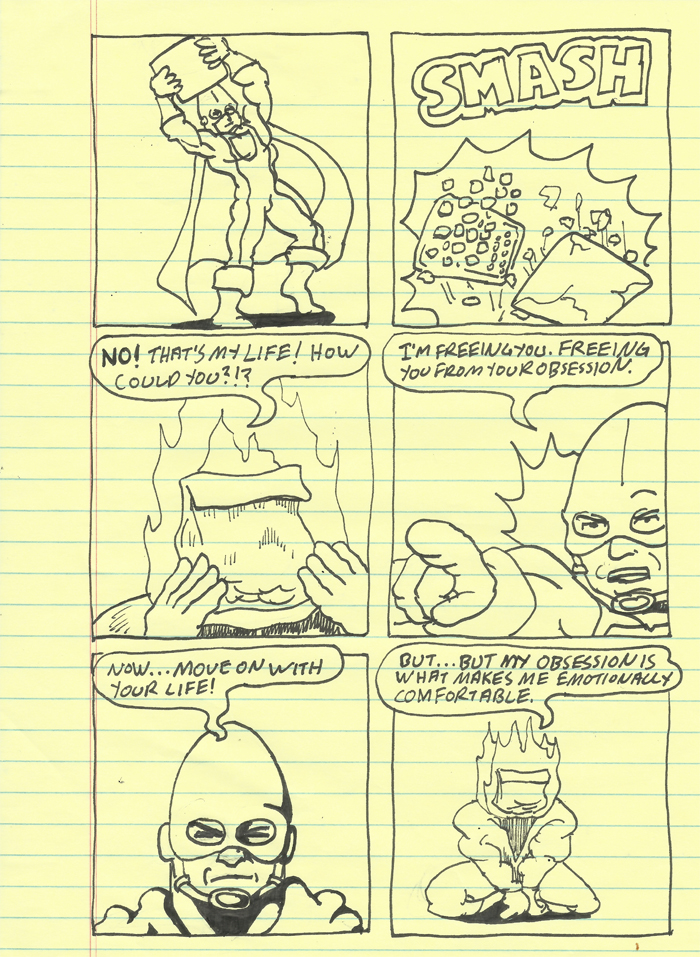 SMASH
NO! THAT'S MY LIFE! HOW
COULD YOU?!?
I'M FREEING YOU. FREEING
YOU FROM YOUR OBSESSION.
NOW... MOVE ON WITH
YOUR LIFE!
BUT... BUT MY OBSESSION IS
WHAT MAKES ME EMOTIONALLY
COMFORTABLE.